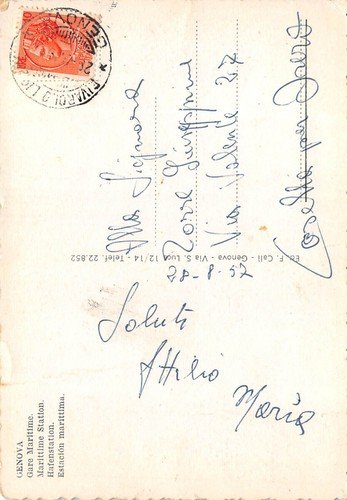 GENOVA
Gare Maritime.
Marittime Station.
Hafenstation.
Estación marittima.
28-8-57
Saluti
Attilio
Maria
Ed. F. Cali - Genova - Via S. Luca 12/14 - Telef. 22.852
Alla Signora
Torre Giuseppina
Via Valente 27
per
RIVAROLO LIG
GENOVA